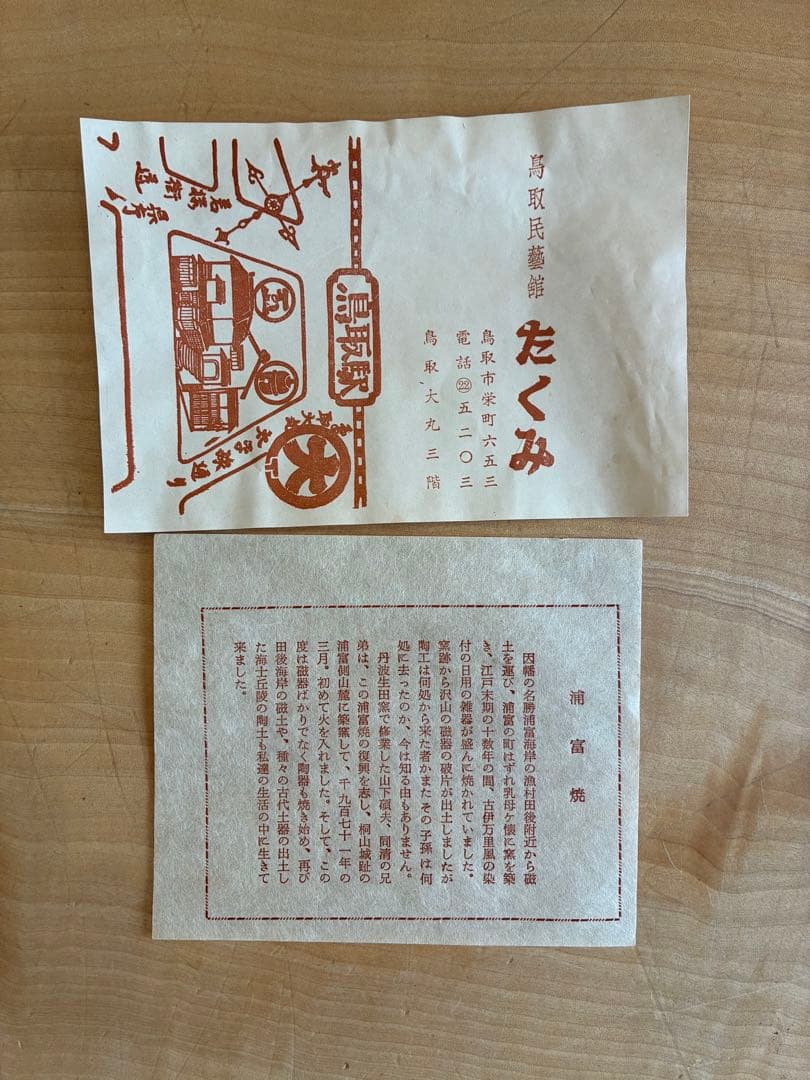 鳥取民藝館
たくみ
鳥取市栄町六五三
電話㉒五二〇三
鳥取大丸三階
鳥取駅
大
鳥取大丸
若桜街道
浦富焼
因幡の名勝浦富海岸の漁村田後附近から磁
土を運び、浦富の町はずれ乳母ケ懐に窯を築
き、江戸末期の十数年の間、古伊万里風の染
付の日用の雑器が盛んに焼かれていました。
窯跡から沢山の磁器の破片が出土しましたが
陶工は何処から来た者かまたその子孫は何
処に去ったのか、今は知る由もありません。
丹波生田窯で修業した山下碩夫、同清の兄
弟は、この浦富焼の復興を志し、桐山城趾の
浦富側山麓に築窯して、千九百七十一年の
三月。初めて火を入れました。そして、この
度は磁器ばかりでなく陶器も焼き始め、再び
田後海岸の磁土や、種々の古代土器の出土し
た海士丘陵の陶土も私達の生活の中に生きて
来ました。